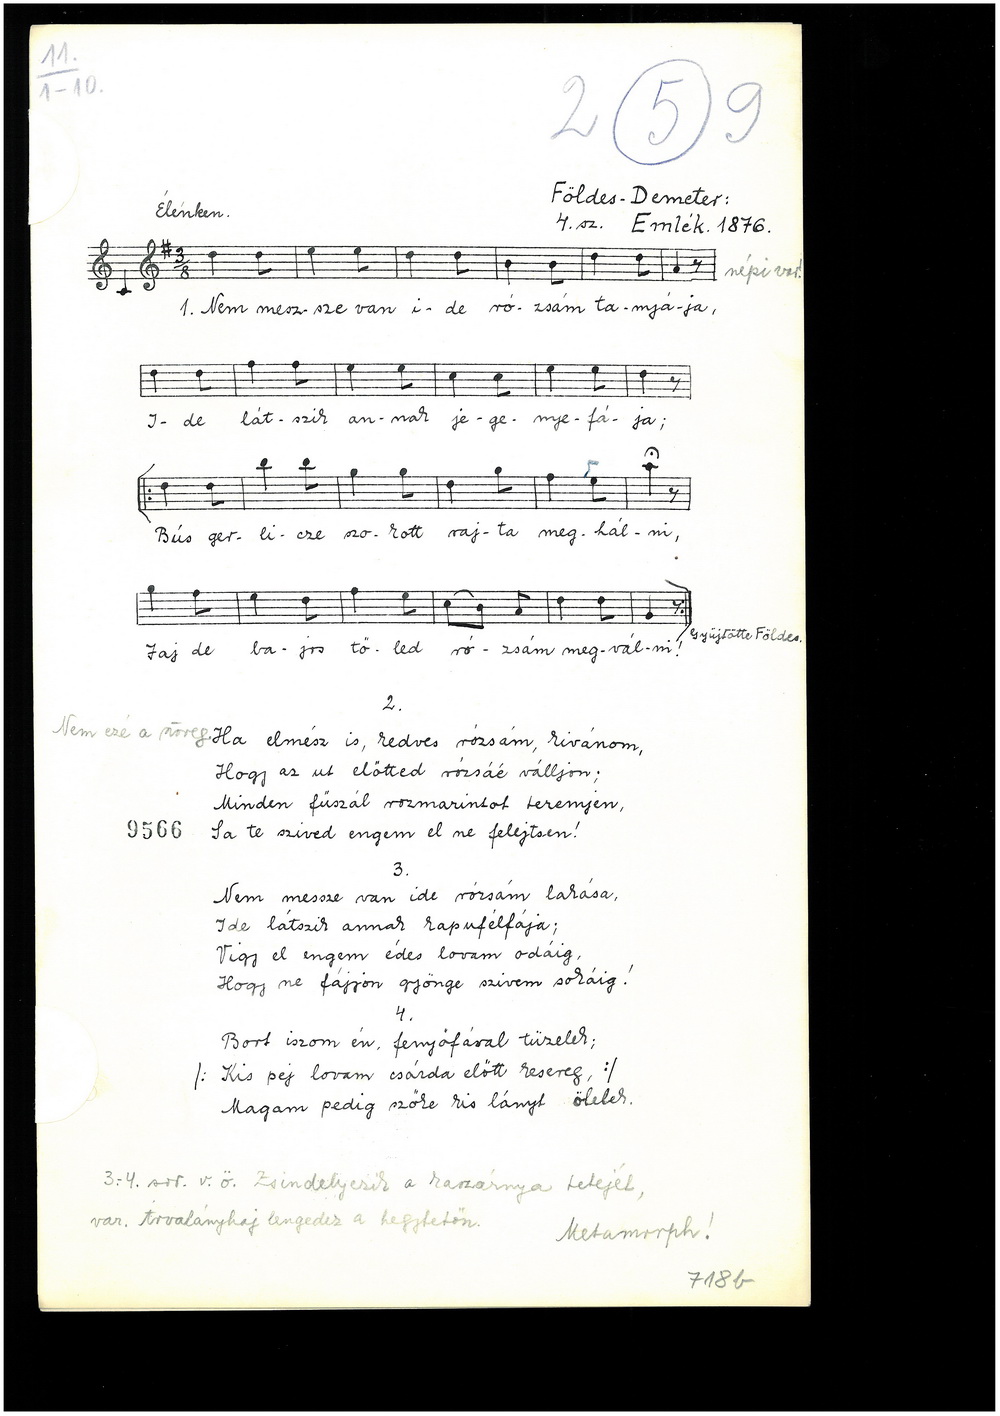 11.
1-10.
2 5 9
Élénken.
Földes-Demeter:
4. sz. Emlék. 1876.
3/8
népi var!
1. Nem mesz-sze van i-de ró-zsám ta-nyá-ja,
I-de lát-szik an-nak je-ge-nye-fá-ja;
5
Bús ger-li-cze szo-kott raj-ta meg-hál-ni,
Jaj de ba-jos tő-led ró-zsám meg-vál-ni!
Gyüjtötte Földes.
2.
Nem ezé a szöveg.
Ha elmész is, kedves rózsám, kivánom,
Hogy az ut előtted rózsáé válljon;
Minden füszál rozmarintot teremjen,
9566
Sa te szived engem el ne felejtsen!
3.
Nem messze van ide rózsám lakása,
Ide látszik annak kapufélfája;
Vigy el engem édes lovam odáig,
Hogy ne fájjon gyönge szivem sokáig!
4.
Bort iszom én, fenyőfával tüzelek;
/: Kis pej lovam csárda előtt kesereg, :/
Magam pedig szőke kis lányt ölelek.
3-4. sor. v. ö. Zsindelyezik a kaszárnya tetejét,
var. Árvalányhaj lengedez a hegytetőn.
Metamorph!
718b